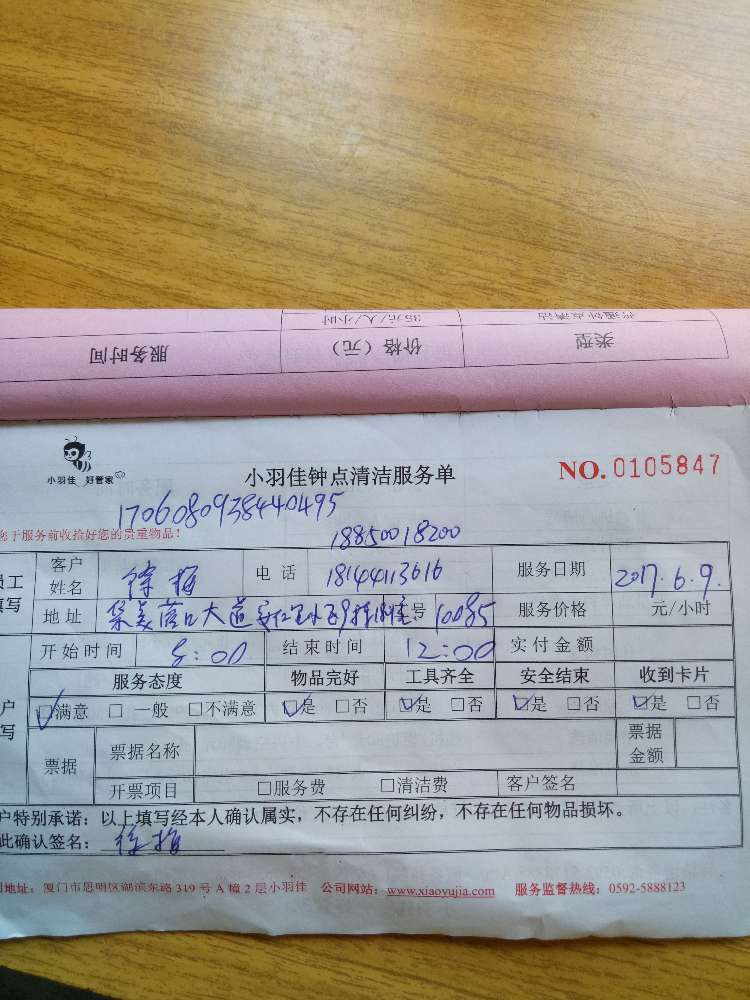 普通钟点清洁 35元/人/小时
类型 价格（元） 服务时间
小羽佳 好管家
小羽佳钟点清洁服务单
NO. 0105847
1706080938440495
您于服务前收拾好您的贵重物品！
18850018200
员工填写 客户姓名 徐梅 电话 18144113616 服务日期 2017.6.9.
地址 号 10085 服务价格 元/小时
开始时间 8:00 结束时间 12:00 实付金额
服务态度 物品完好 工具齐全 安全结束 收到卡片
☑满意 □一般 □不满意 ☑是 □否 ☑是 □否 ☑是 □否 ☑是 □否
票据 票据名称 票据金额
开票项目 □服务费 □清洁费 客户签名
户特别承诺：以上填写经本人确认属实，不存在任何纠纷，不存在任何物品损坏。
此确认签名：徐梅
地址：厦门市思明区湖滨东路319号A幢2层小羽佳 公司网站：www.xiaoyujia.com 服务监督热线：0592-5888123